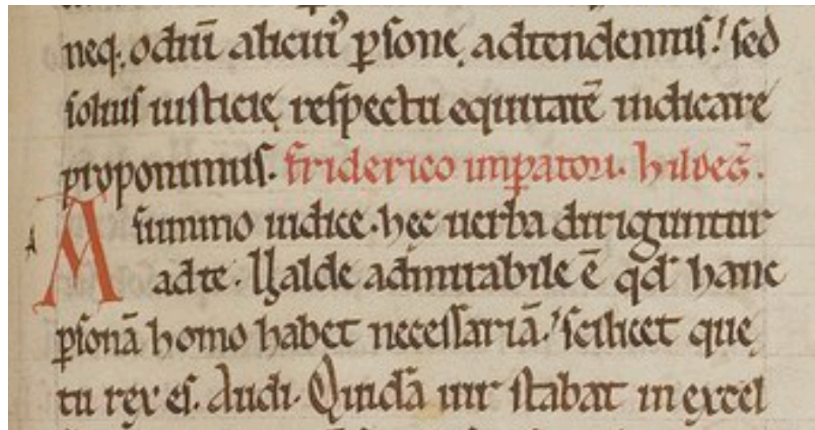 neq; odiū alicui᷒ ꝑsone, adtendemus! sed
solius iusticię respectu equitatē iudicare
proponimus. Friderico imꝑatori. hildeḡ.
A summo iudice. hęc uerba diriguntur
ad te. Ualde admirabile ē qd̄ hanc
ꝑsonā homo habet necessariā! scilicet que
tu rex es. Audi. Quidā uir stabat in excel